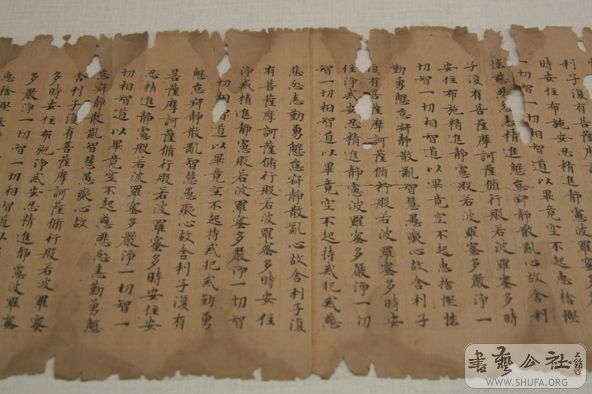 時安住布施安忍精進靜慮波
一切相智道以畢竟空不起惠捨慳
悲忿恚勤勇懈怠寂靜散亂心故舍利
子復有菩薩摩訶薩修行般若波羅蜜多時
安住布施精進靜慮般若波羅蜜多嚴淨一
切智一切相智道以畢竟空不起惠捨慳悋
勤勇懈怠寂靜散亂智慧愚癡心故舍利子
復有菩薩摩訶薩修行般若波羅蜜多時安
住淨戒安忍靜慮波羅蜜多嚴淨一切
智一切相智道以畢竟空不起持戒犯戒慈
悲忿恚勤勇懈怠寂靜散亂心故舍利子復
有菩薩摩訶薩修行般若波羅蜜多時安住
淨戒精進靜慮般若波羅蜜多嚴淨一切智
一切相智道以畢竟空不起持戒犯戒勤勇
懈怠寂靜散亂智慧愚癡心故舍利子復有
菩薩摩訶薩修行般若波羅蜜多時安住安
忍精進靜慮般若波羅蜜多嚴淨一切智一
切相智道以畢竟空不起慈悲忿恚勤勇懈
怠寂靜散亂智慧愚癡心故
舍利子復有菩薩摩訶薩修行般若波羅蜜
多時安住布施淨戒安忍精進靜慮波羅蜜
多嚴淨一切智一切相智道以
惠捨慳
書藝公社
WWW.SHUFA.ORG